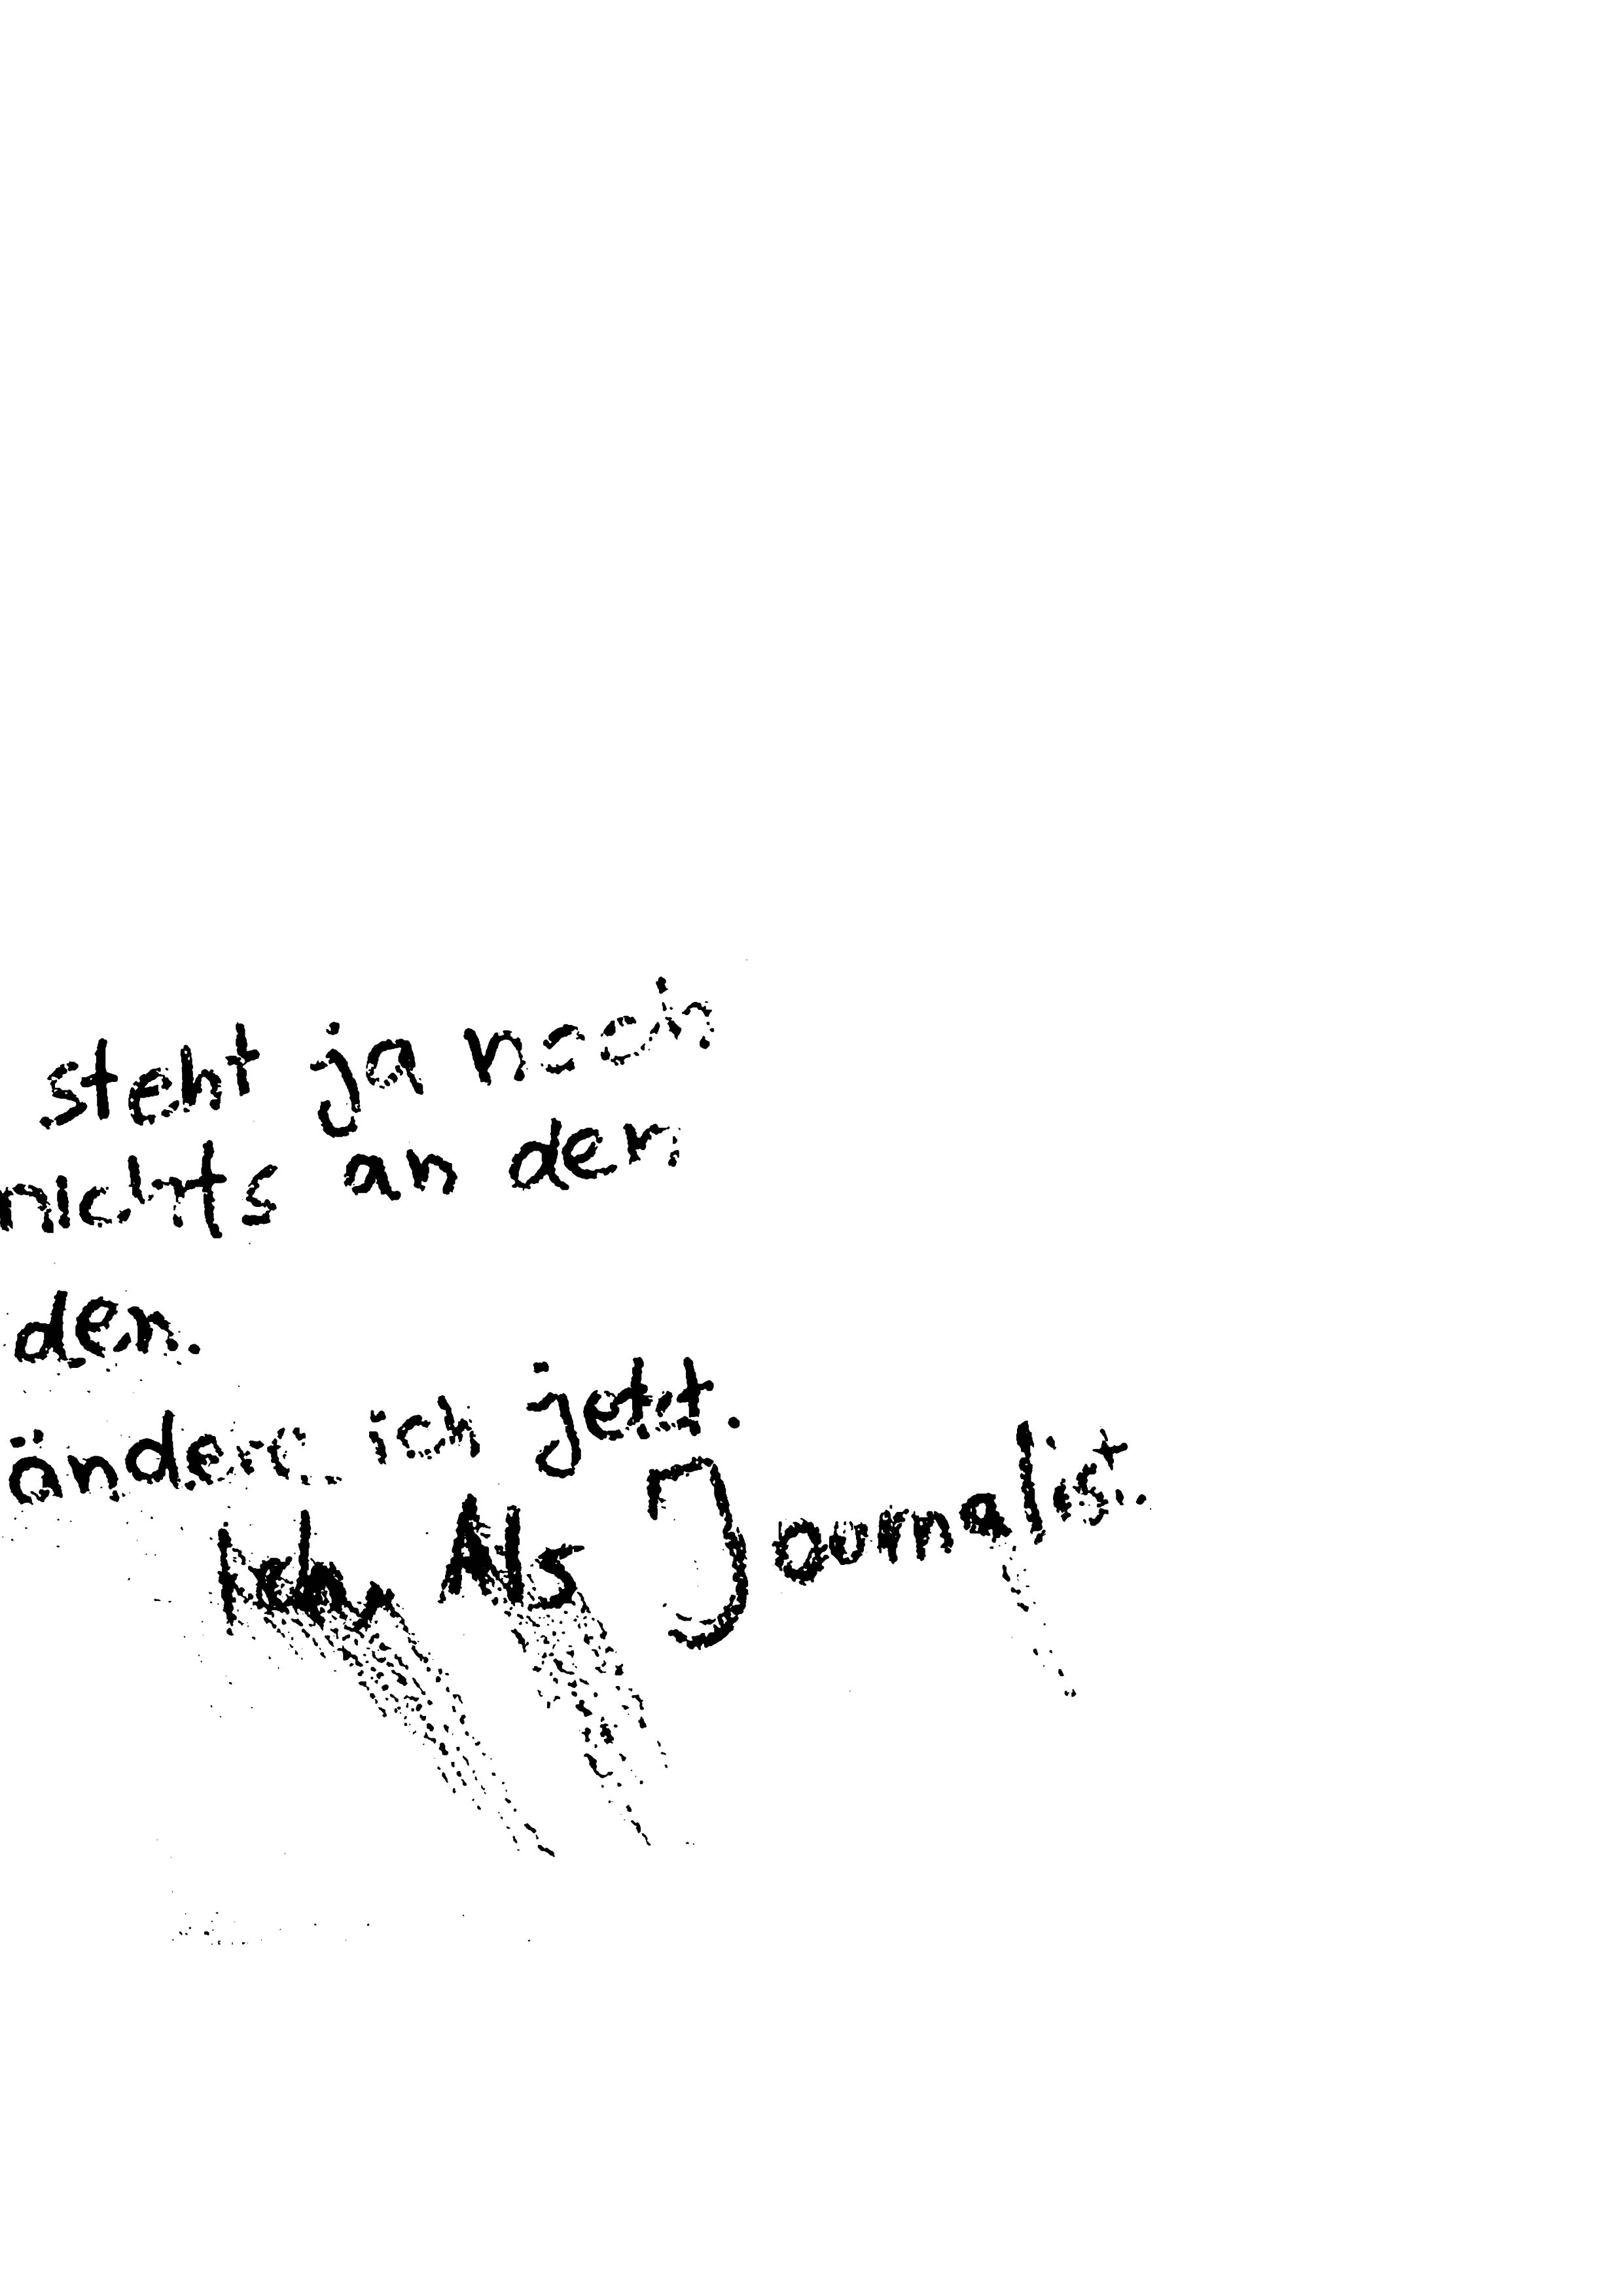 steht ja noch
nichts an den
den.
ändere ich jetzt.
Ich, Als Journalist.